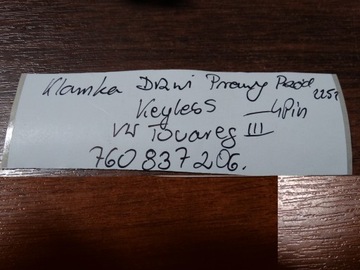 Klamka Drzwi Prawy Przód
Keyless 4Pin
VW Touareg III
760 837 206.